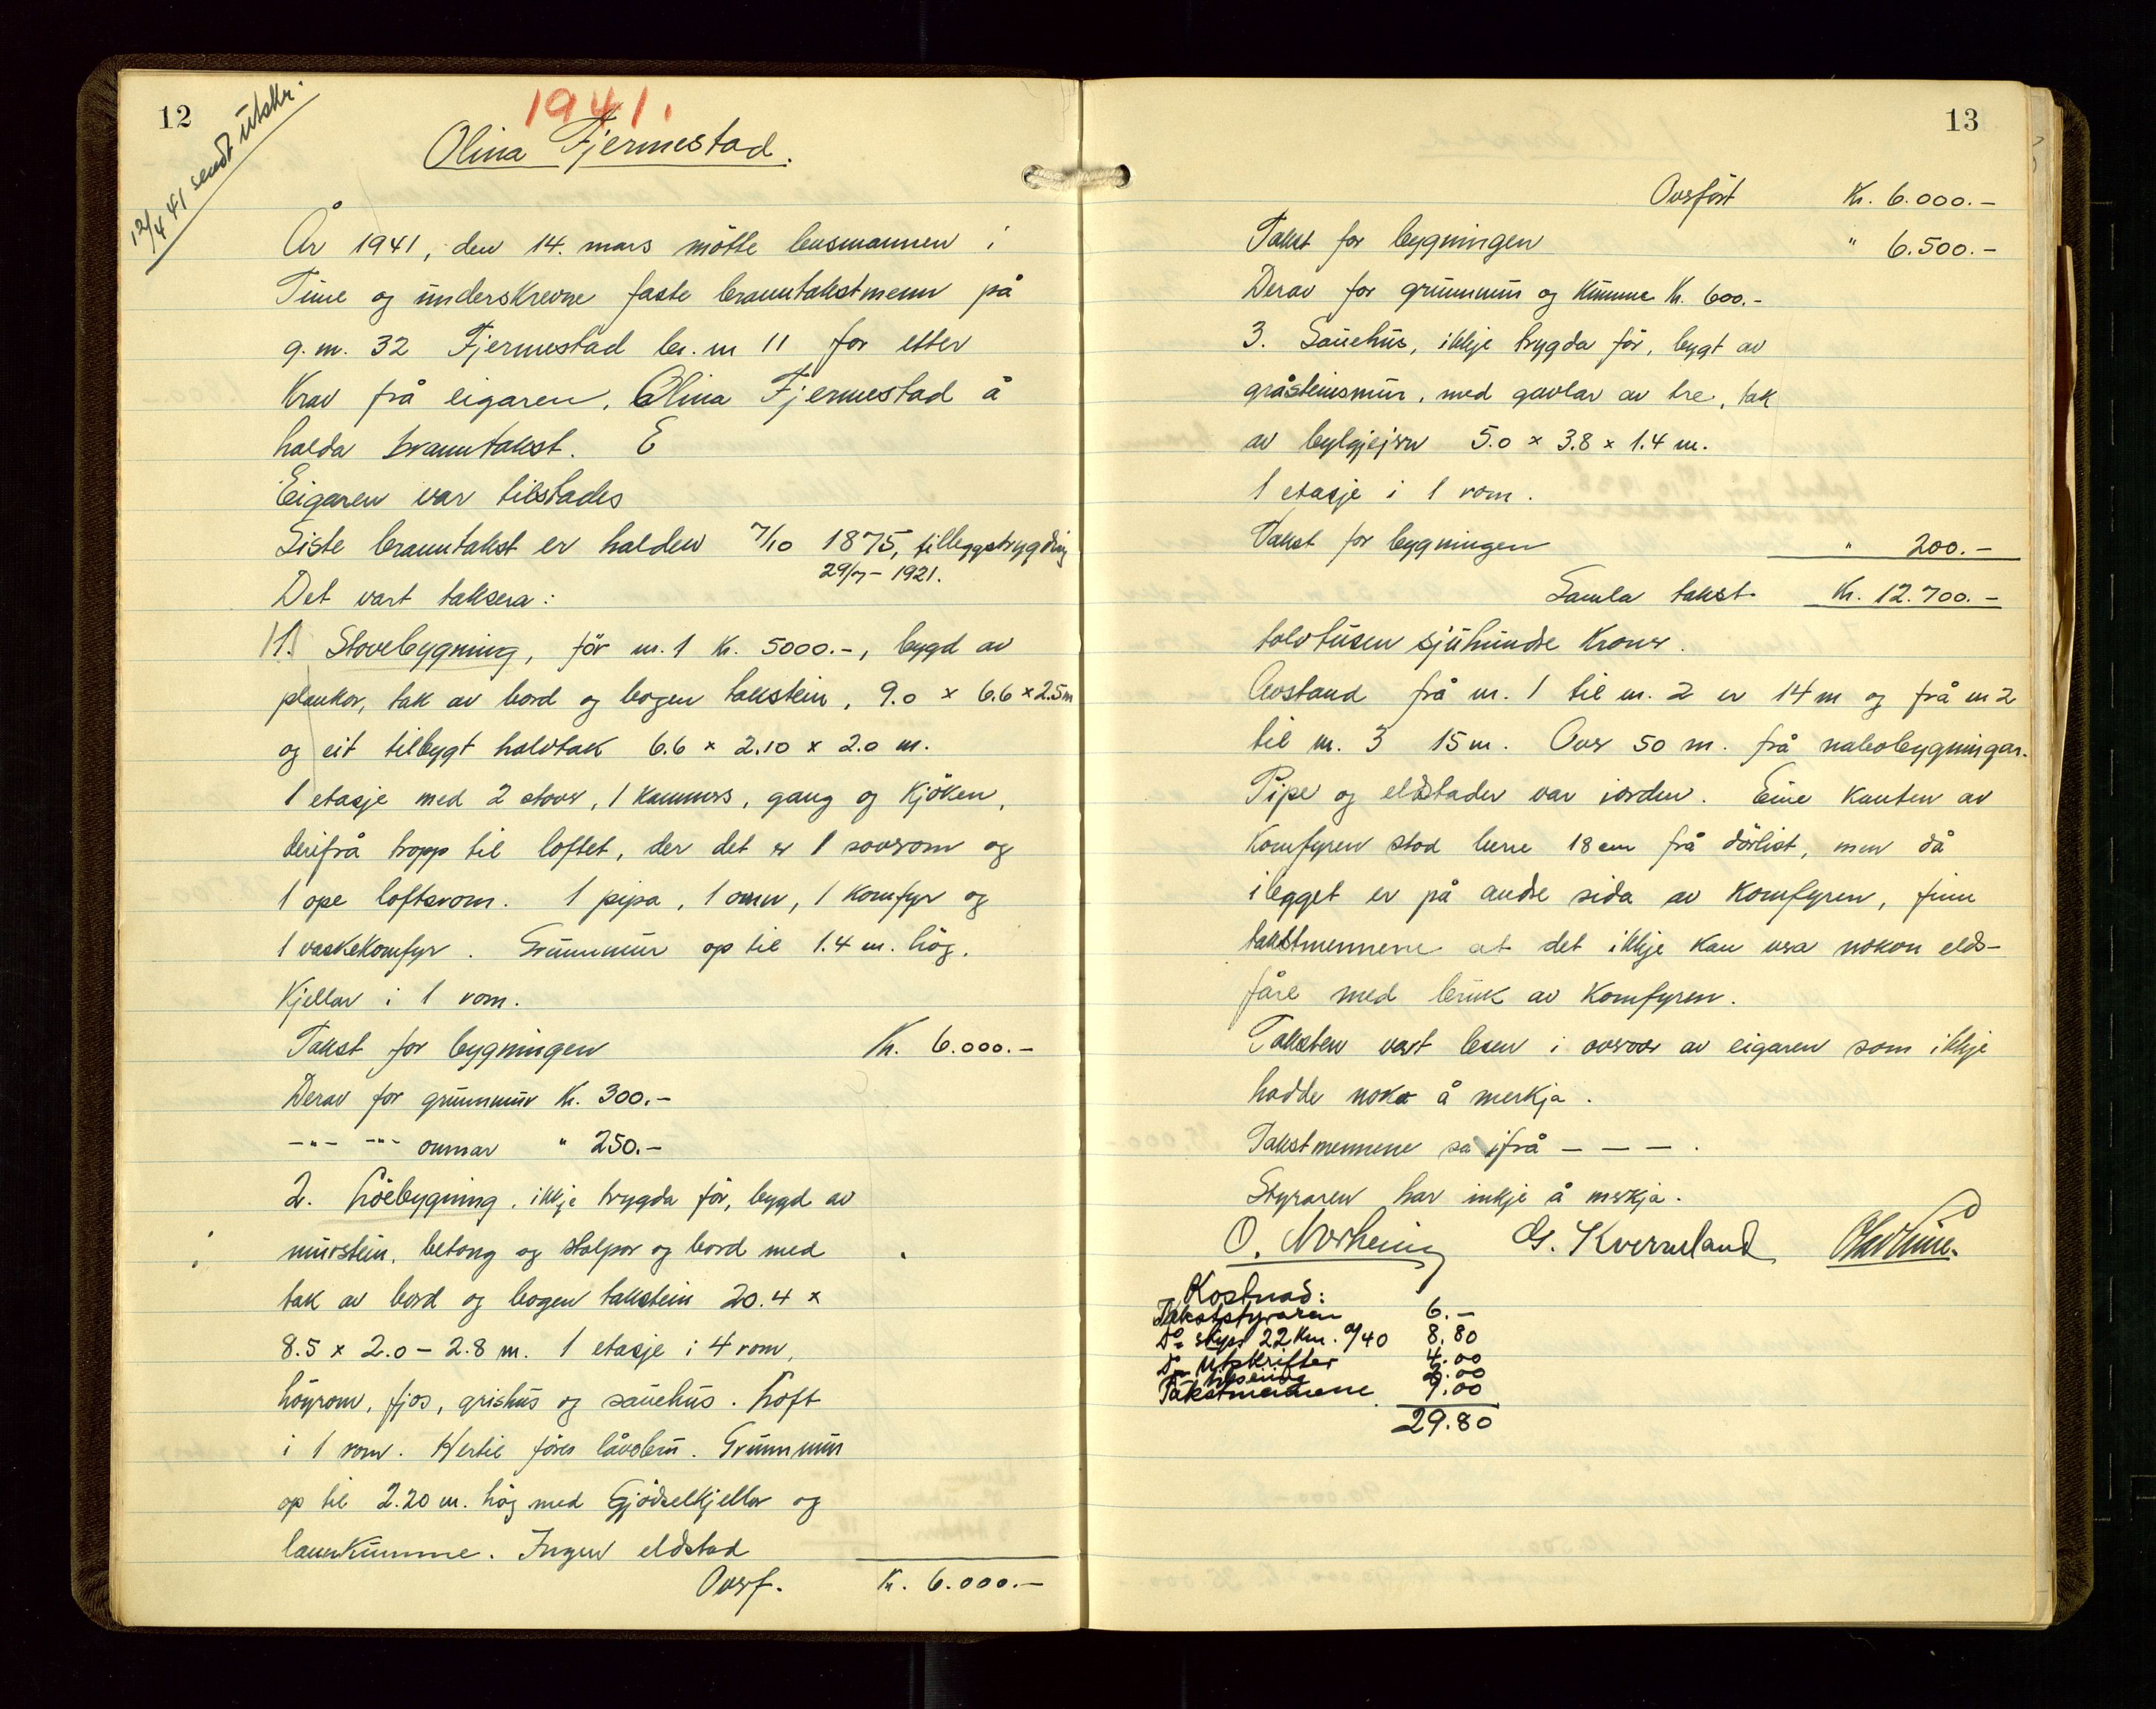 12
1941.
12/4 41 sendt utskr.
Olina Fjermestad.
År 1941, den 14. mars møtte lensmannen i
Time og underskrevne faste branntakstmenn på
g.nr. 32 Fjermestad br.nr 11 for etter
krav frå eigaren, Olina Fjermestad å
halda branntakst. E
Eigaren var tilstades
Siste branntakst er halden 7/10 1875, tilleggstrygding
29/7-1921.
Det vart taksera:
1. Stovebygning, før nr. 1 Kr. 5000.-, bygd av
plankor, tak av bord og bogen takstein, 9.0 x 6.6 x 2.5m
og eit tilbygt halvtak 6.6 x 2.10 x 2.0 m.
1 etasje med 2 stover, 1 kammers, gang og kjøken,
derifrå tropp til loftet, der det er 1 soverom og
1 ope loftsrom. 1 pipa, 1 omn, 1 komfyr og
1 vaskekomfyr. Grunnmur op til 1.4 m. høg.
Kjellar i 1 rom.
Takst for bygningen Kr. 6.000.-
Derav for grunnmur Kr. 300.-
-"- -"- omnar " 250.-
2. Løebygning, ikkje trygda før, bygd av
murstein, betong og stolpor og bord med
tak av bord og bogen takstein 20.4 x
8.5 x 2.0 - 2.8 m. 1 etasje i 4 rom,
høyrom, fjos, grishus og sauehus. Loft
i 1 rom. Hertil føres låvebru. Grunnmur
op til 2.20 m. høg med Gjødselkjellar og
landkumme. Ingen eldstad
Overf. Kr. 6.000.-
13
Overført Kr. 6.000.-
Takst for bygningen " 6.500.-
Derav for grunnmur og kumme Kr. 600.-
3. Sauehus, ikkje trygda før, bygt av
gråsteinsmur, med gavlar av tre, tak
av bylgjejern 5.0 x 3.8 x 1.4 m.
1 etasje i 1 rom.
Takst for bygningen " 200.-
Samla takst Kr. 12.700.-
tolvtusen sjuhundre kroner.
Avstand frå nr. 1 til nr. 2 er 14 m og frå nr 2
til nr. 3 15 m. Over 50 m. frå nabobygningar.
Pipe og eldstader var iorden. Eine kanten av
komfyren stod berre 18 cm frå dørlist, men då
ilegget er på andre sida av komfyren, finn
takstmennene at det ikkje kan vera nokon elds-
fåre med bruk av komfyren.
Taksten vart lesen i overvær av eigaren som ikkje
hadde noko å merkja.
Takstmennene sa ifrå - - - .
Styraren har inkje å merkja.
O. Norheim G. Kverneland
Kostnad:
Takststyraren 6.-
Do skyss 22 km. a/40 8.80
Do utskrifter 4.00
Do 2.00
Takstmennene 9.00
29.80